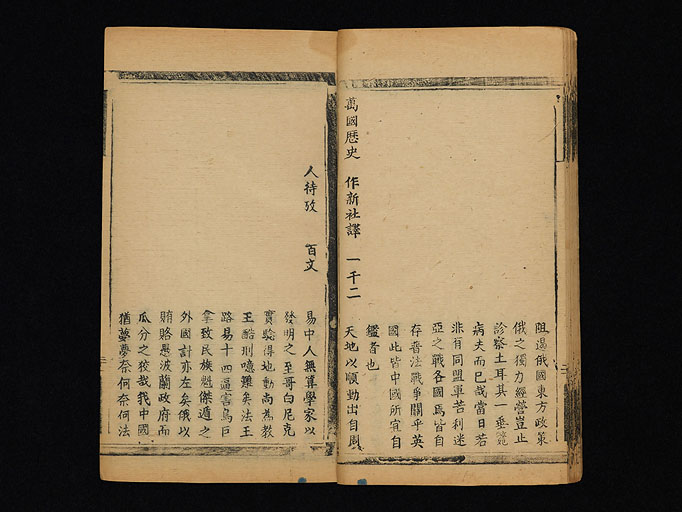 阻遏俄國東方政策
俄之獨力經營豈止
診察土耳其一垂斃
病夫而已哉當日若
非有同盟軍苦利迷
亞之戰各國焉皆自
存普法戰爭關乎英
國此皆中國所宜自
鑑者也
萬國歷史 作新社譯 一千二
天地以順動出自
易中人無算學家以
人待攷 百文
發明之至哥白尼克
實驗得地動尚為教
王酷刑噫難矣法王
路易十四逼害烏巨
拿致民族魁傑遁之
外國計亦左矣俄以
賄賂愚波蘭政府而
瓜分之狡哉我中國
猶夢夢奈何奈何法